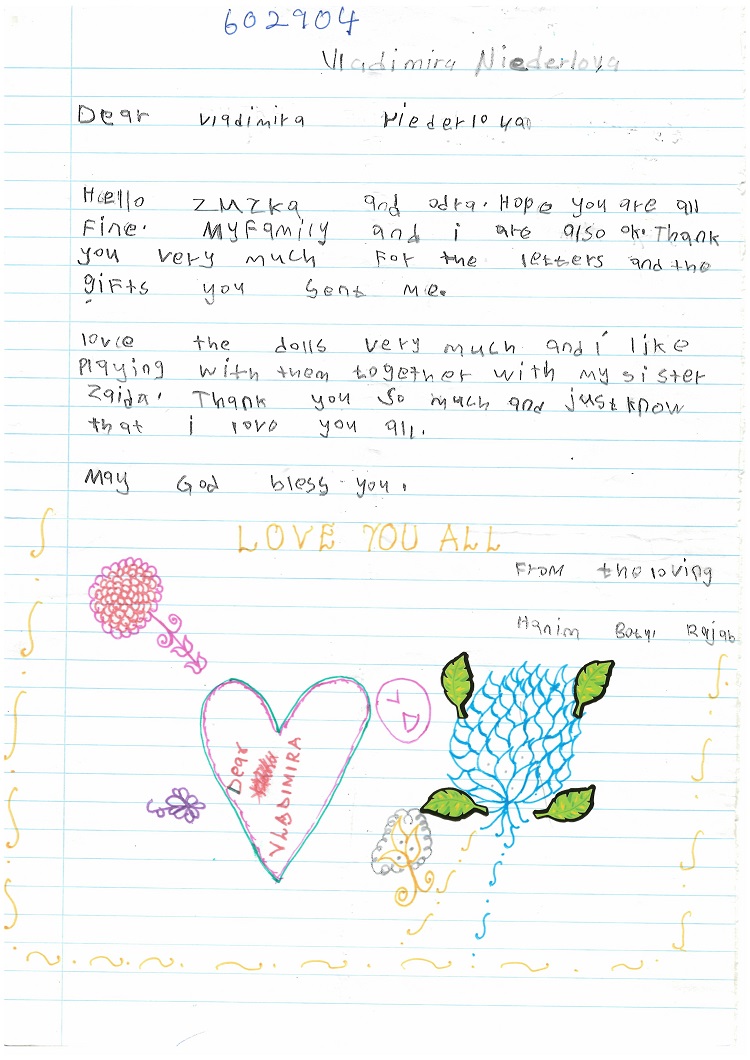 602904
Vladimira Niederlova
Dear Vladimira Niederlova
Hello ZMZKa and odra. Hope you are all
Fine. My Family and i are also ok. Thank
you very much For the letters and the
gifts you sent me.
lovce the dolls very much and i like
Playing with them together with my sister
Zaida. Thank you so much and just know
that i love you all.
May God bless you.
LOVE YOU ALL
From the loving
Hanim Rajab
Dear
VLADIMIRA